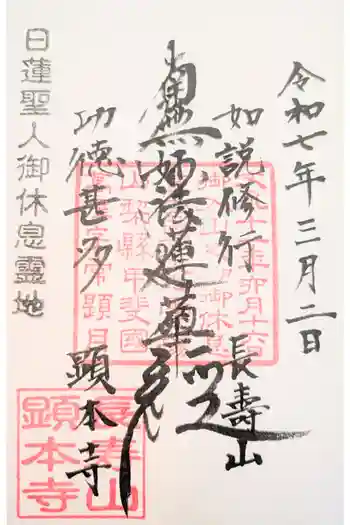 令和七年三月二日
如説修行
長壽山
南無妙法蓮華経
功徳甚多
顕本寺
日蓮聖人御休息靈地
長壽山
顕本寺